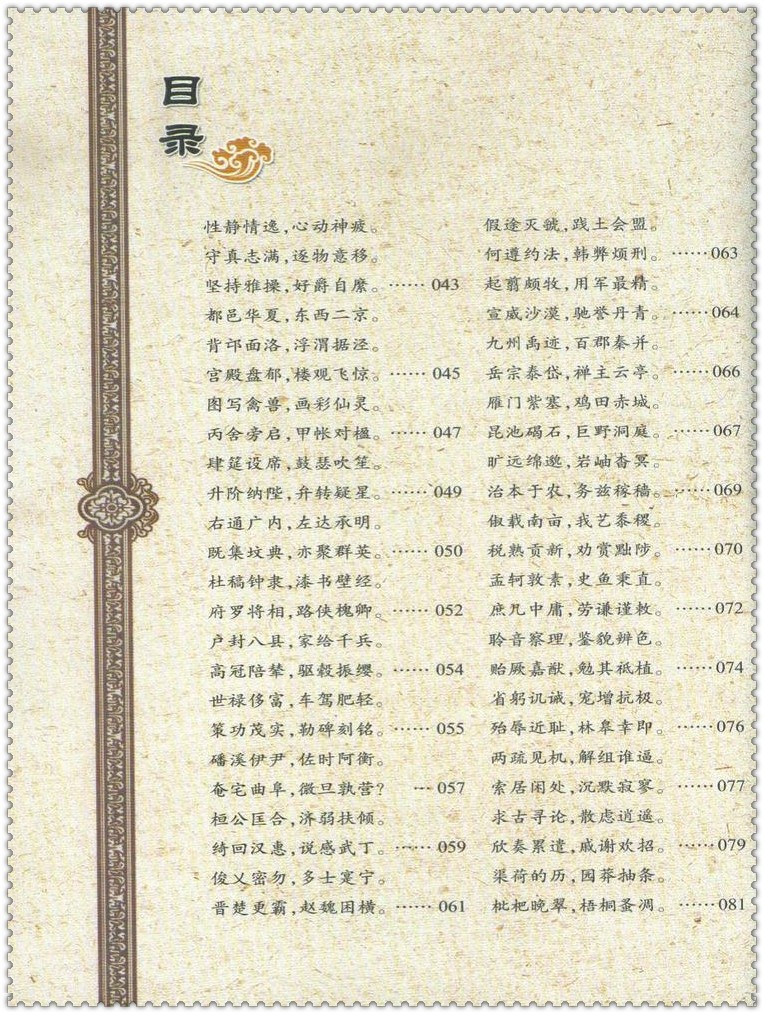 目
录
性静情逸,心动神疲。
守真志满,逐物意移。
坚持雅操,好爵自縻。……043
都邑华夏,东西二京。
背邙面洛,浮渭据泾。
宫殿盘郁,楼观飞惊。……045
图写禽兽,画彩仙灵。
丙舍旁启,甲帐对楹。……047
肆筵设席,鼓瑟吹笙。
升阶纳陛,弁转疑星。……049
右通广内,左达承明。
既集坟典,亦聚群英。……050
杜稿钟隶,漆书壁经。
府罗将相,路侠槐卿。……052
户封八县,家给千兵。
高冠陪辇,驱毂振缨。……054
世禄侈富,车驾肥轻。
策功茂实,勒碑刻铭。……055
磻溪伊尹,佐时阿衡。
奄宅曲阜,微旦孰营?…057
桓公匡合,济弱扶倾。
绮回汉惠,说感武丁。……059
俊乂密勿,多士寔宁。
晋楚更霸,赵魏困横。……061
假途灭虢,践土会盟。
何遵约法,韩弊烦刑。……063
起翦颇牧,用军最精。
宣威沙漠,驰誉丹青。……064
九州禹迹,百郡秦并。
岳宗泰岱,禅主云亭。……066
雁门紫塞,鸡田赤城。
昆池碣石,巨野洞庭。……067
旷远绵邈,岩岫杳冥。
治本于农,务兹稼穑。……069
俶载南亩,我艺黍稷。
税熟贡新,劝赏黜陟。……070
孟轲敦素,史鱼秉直。
庶几中庸,劳谦谨敕。……072
聆音察理,鉴貌辨色。
贻厥嘉猷,勉其祗植。……074
省躬讥诫,宠增抗极。
殆辱近耻,林皋幸即。……076
两疏见机,解组谁逼。
索居闲处,沉默寂寥。……077
求古寻论,散虑逍遥。
欣奏累遣,戚谢欢招。……079
渠荷的历,园莽抽条。
枇杷晚翠,梧桐蚤凋。……081